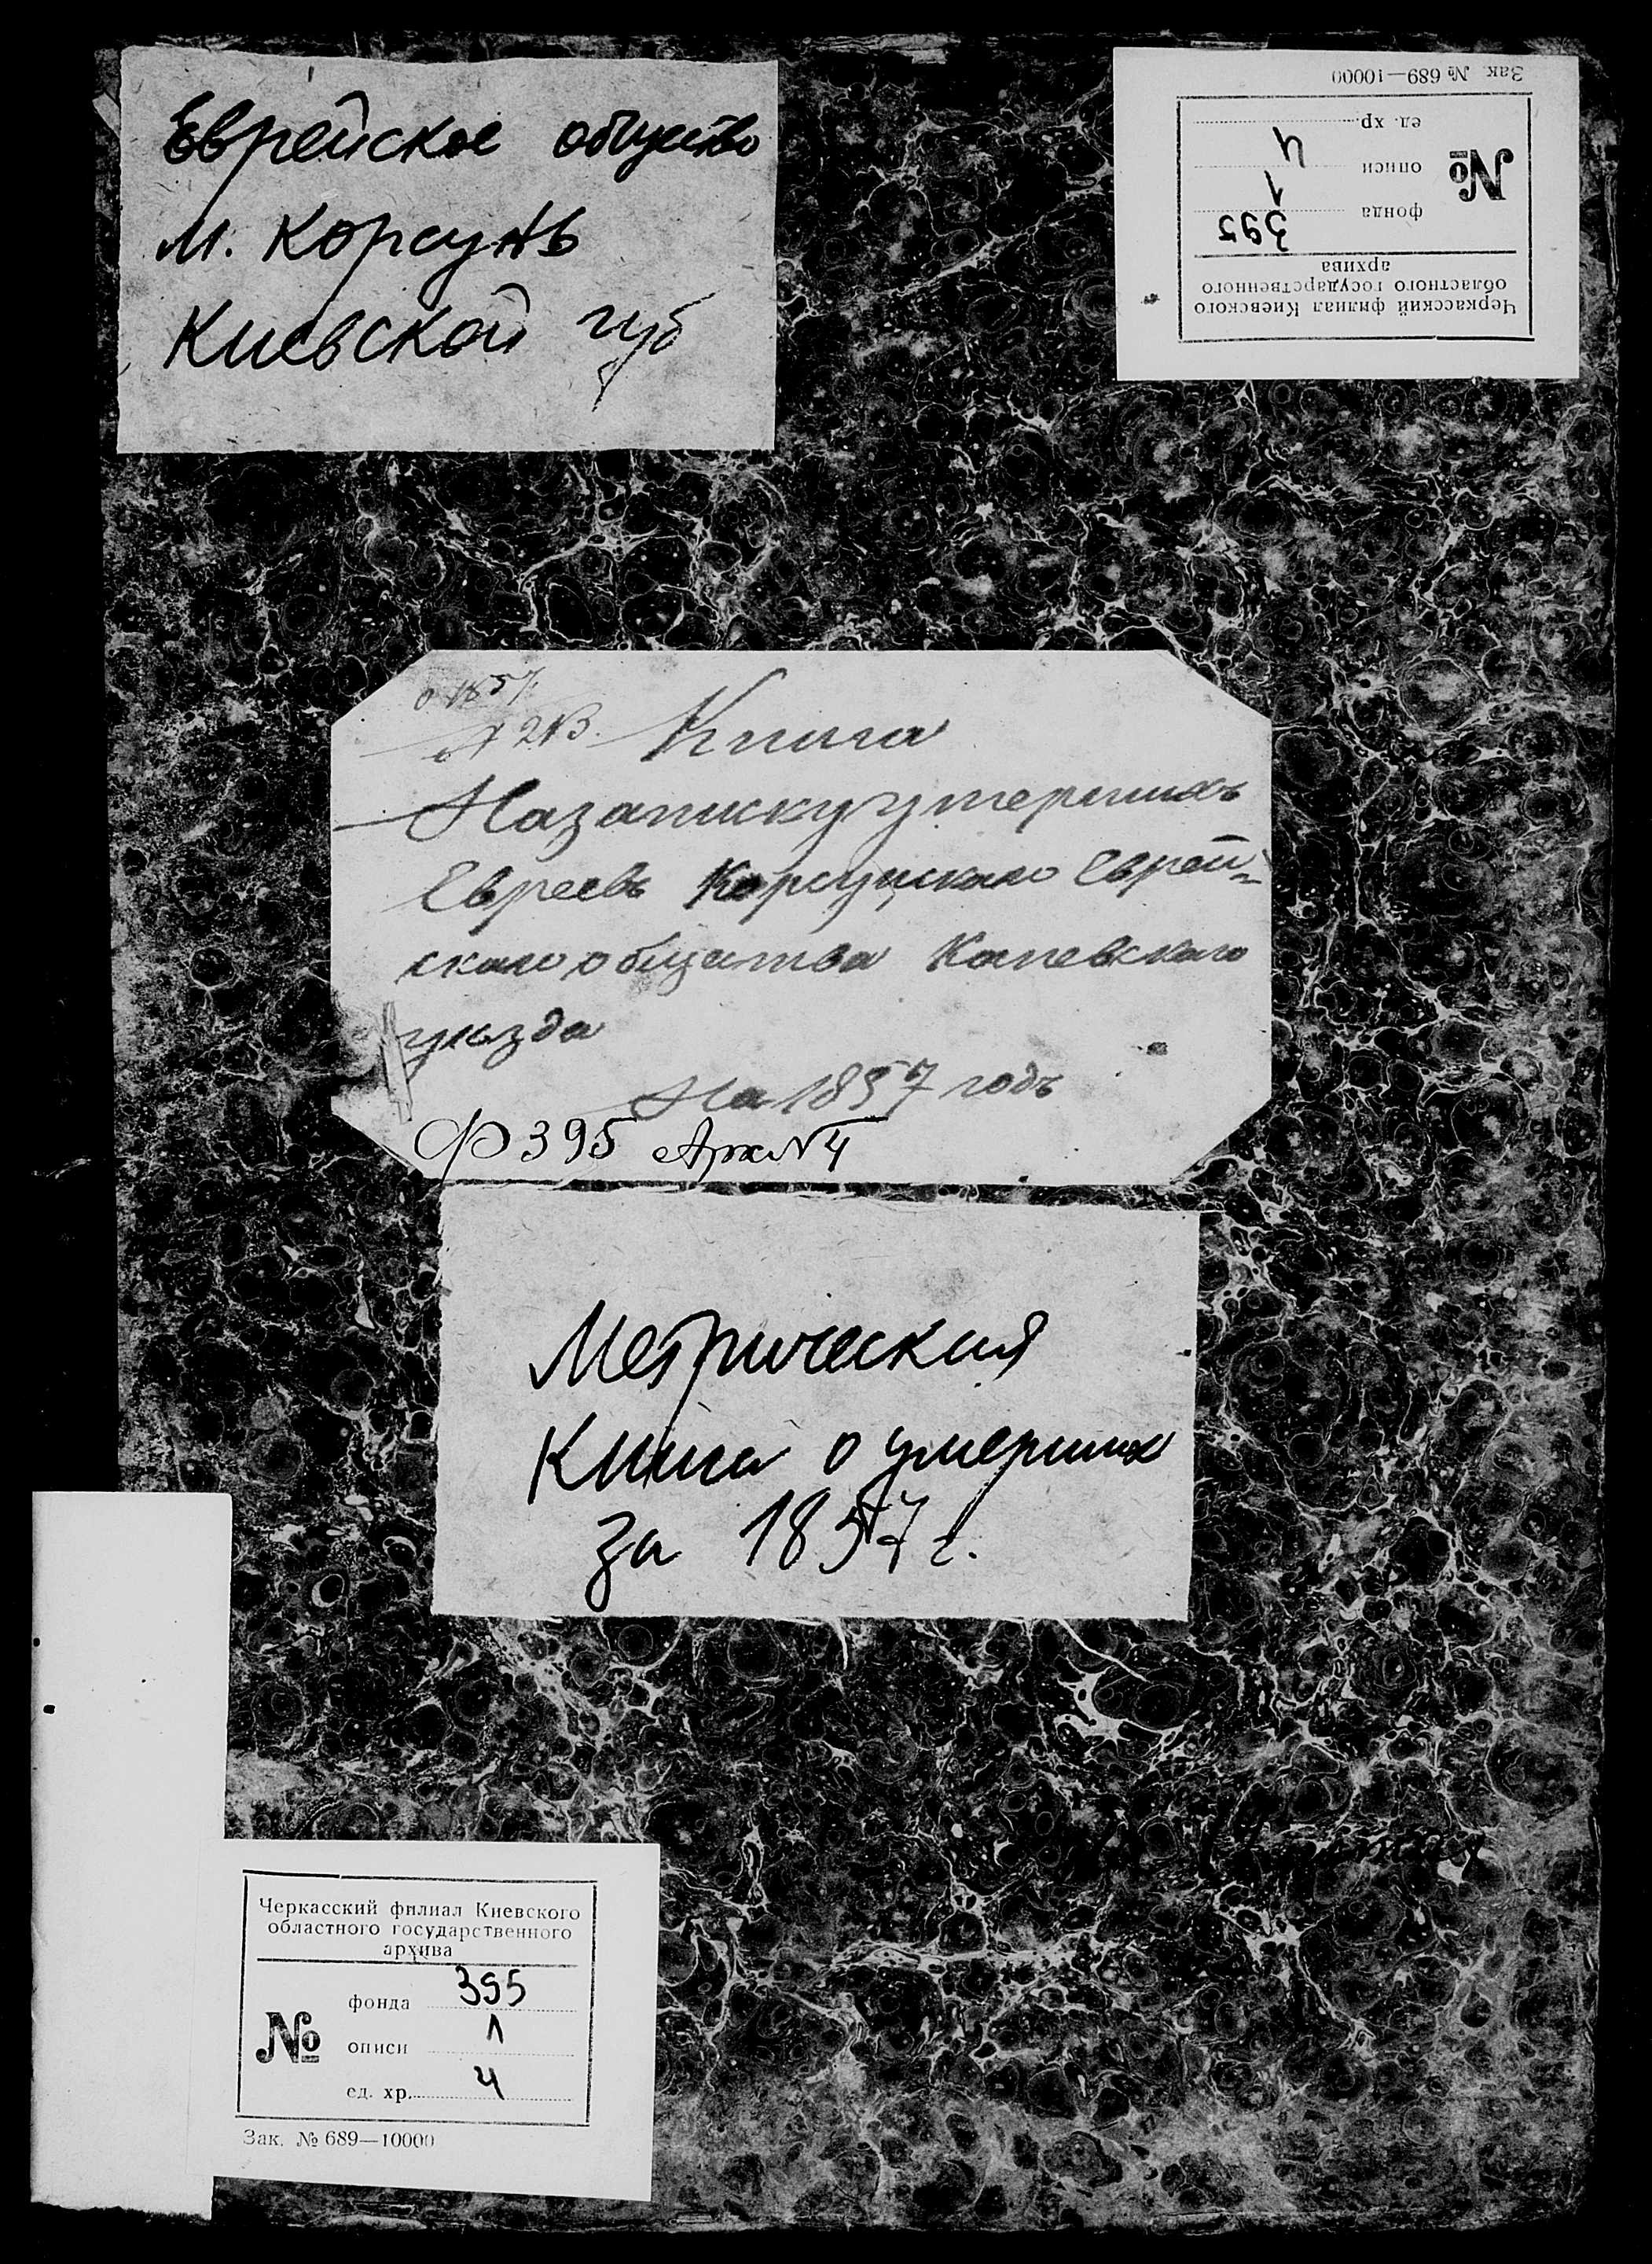 Еврейское общество
м. Корсунь
Киевской губ
Зак. № 689—10000
Черкасский филиал Киевского
областного государственного
архива
№
фонда 395
описи 1
ед. хр. 4
1857.
Книга
На записку умершихъ
Евреевъ Корсунскаго Еврей=
скаго общества Каневскаго
уезда
На 1857 годъ
Ф 395 Арх № 4
Метрическая
Книга о умерших
за 1857 г.
Черкасский филиал Киевского
областного государственного
архива
№
фонда 395
описи 1
ед. хр. 4
Зак. № 689—10000